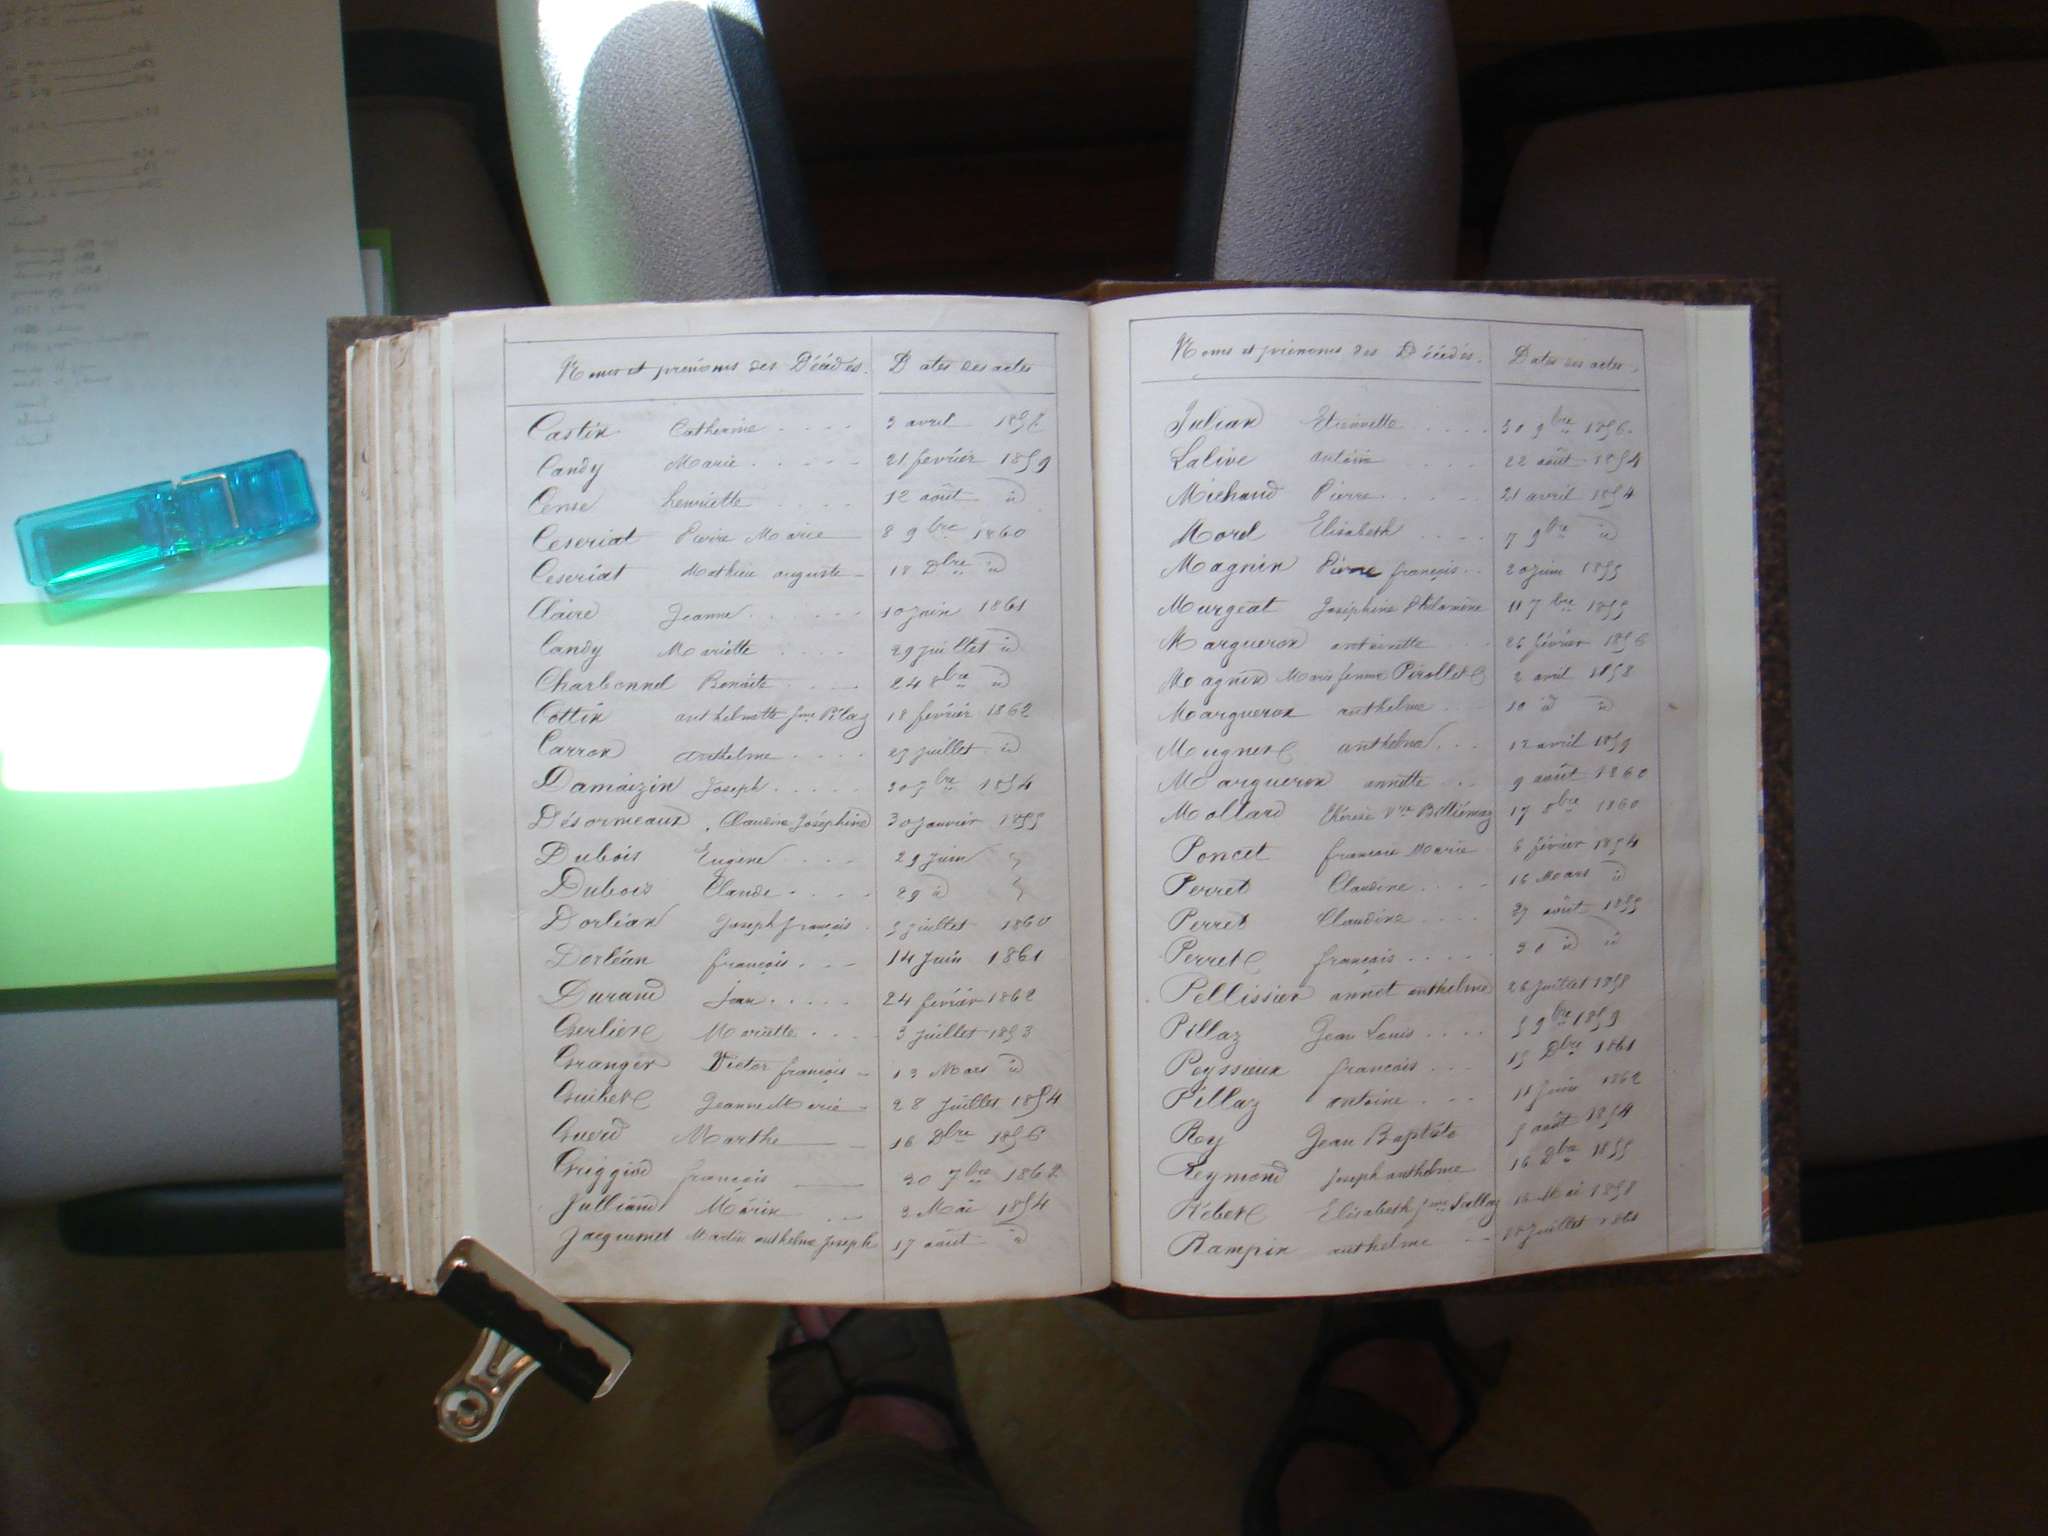 Noms et prénoms des Décédés. Dates des actes
Castin Catherine 3 avril 1858
Candy Marie 21 février 1859
Cense henriette 12 août id
Ceseriat Pierre Marie 8 9bre 1860
Ceseriat Mathieu auguste 18 Dbre id
Claire Jeanne 10 juin 1861
Candy Mariette 29 juillet id
Charbonnel Benoite 24 8bre id
Cottin anthelmette fme Pilaz 18 février 1862
Carron anthelme 25 juillet id
Damaizin Joseph 1854
Désormeaux Claudine Joséphine 30 janvier 1855
Dubois Eugène 29 juin
Dubois Claude 29 id
Dorléan Joseph françois 5 juillet 1860
Dorléan françois 14 juin 1861
Durand Jean 24 février 1862
Gerliere Mariette 3 juillet 1853
Granger Victor françois 13 Mars id
Guibert Jeanne Marie 28 juillet 1854
Guerd Marthe 16 Dbre 1856
Griggiod françois 30 7bre 1862
Julliand Marin 3 Mai 1854
Jacquemet Martin anthelme Joseph 17 août id
Noms et prénoms des Décédés. Dates des actes
Julian Etiennette 30 9bre 1856
Lalive antoine 22 août 1854
Michaud Pierre 21 avril 1854
Morel Elisabeth 7 9bre id
Magnin Pierre françois 20 juin 1855
Murgeat Joséphine Philomène 11 7bre 1855
Margueron antoinette 26 février 1856
Magnin Marie femme Pirollet 2 avril 1858
Margueron anthelme 10 id id
Mugnier anthelme 12 avril 1859
Margueron annette 9 août 1860
Mollard thérèse Vve Billiémaz 17 8bre 1860
Poncet françoise Marie 6 février 1854
Perret Claudine 16 Mars id
Perret Claudine 27 août 1855
Perret françois 30 id id
Pellissier annet anthelme 26 juillet 1858
Pillaz Jean Louis 5 9bre 1859
Peyssieux françois 15 Dbre 1861
Pillaz antoine 11 juin 1862
Rey Jean Baptiste 5 août 1854
Reymond Joseph anthelme 16 Dbre 1855
Rébert Elisabeth fme Sallaz 16 Mai 1858
Rampin anthelme juillet 1861